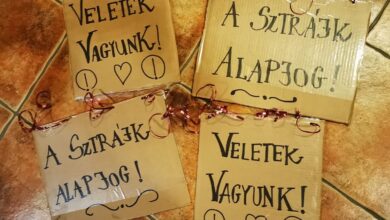 VELETEK
VAGYUNK!
A SZTRÁJK
ALAPJOG!
A SZTRAJK
ALAPJOG!
VELETEK
VAGYUNK!